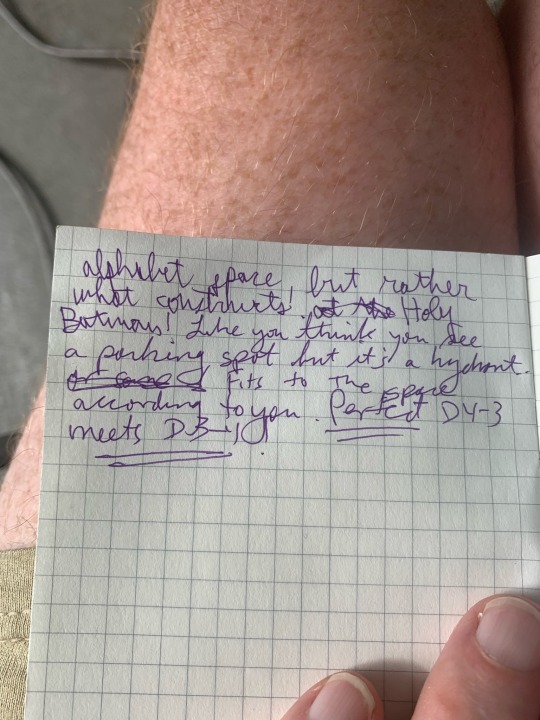 alphabet space, but rather
what constructs! Holy
Batmans! Like you think you see
a parking spot but it's a hydrant.
Fits to the space
according to you. Perfect D4-3
meets D3-